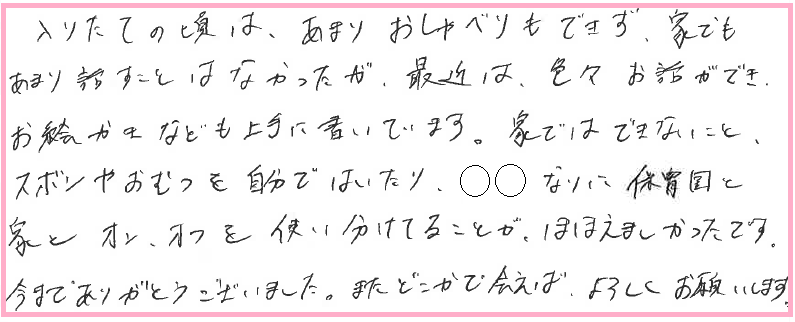 入りたての頃は、あまりおしゃべりもできず、家でも
あまり話すことはなかったが、最近は、色々お話ができ、
お絵かきなども上手に書いています。家ではできないこと、
スボンやおむつを自分ではいたり、○○なりに保育園と
家とオン、オフを使い分けてることが、ほほえましかったです。
今までありがとうございました。またどこかで会えば、よろしくお願いします。